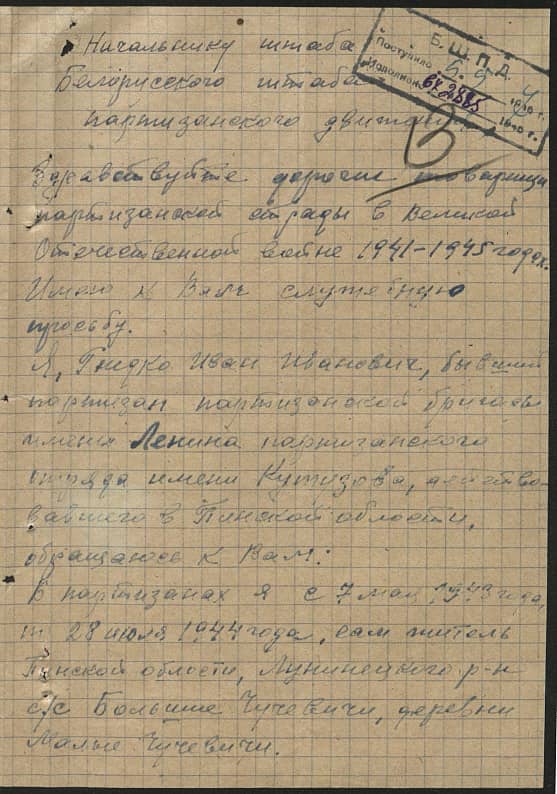 Начальнику штаба
Белорусского штаба
партизанского движения
Б.Ш.П.Д.
Поступило 5. 9
Исполнено
194 г.
Здравствуйте дорогие товарищи
партизанской страды в Великой
Отечественной войне 1941-1945 годах.
Имею к Вам служебную
просьбу.
Я, Гнидко Иван Иванович, бывший
партизан партизанской бригады
имени Ленина партизанского
отряда имени Кутузова, действо-
вавшего в Пинской области,
обращаюсь к Вам:
В партизанах я с 7 мая 1943 года,
по 28 июля 1944 года, сам житель
Пинской области, Лунинецкого р-н
с/с Большие Чучевичи, деревни
Малые Чучевичи.